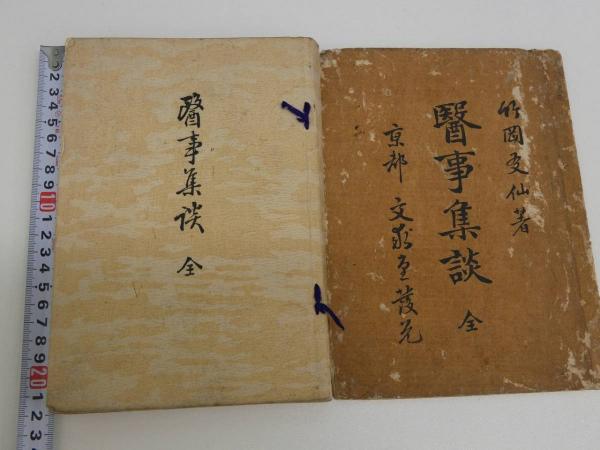 醫事集談
全
竹岡友仙著
醫事集談
全
京都 文求堂發兌
1 2 3 4 5 6 7 8 9 10 1 2 3 4 5 6 7 8 9 20 1 2 3